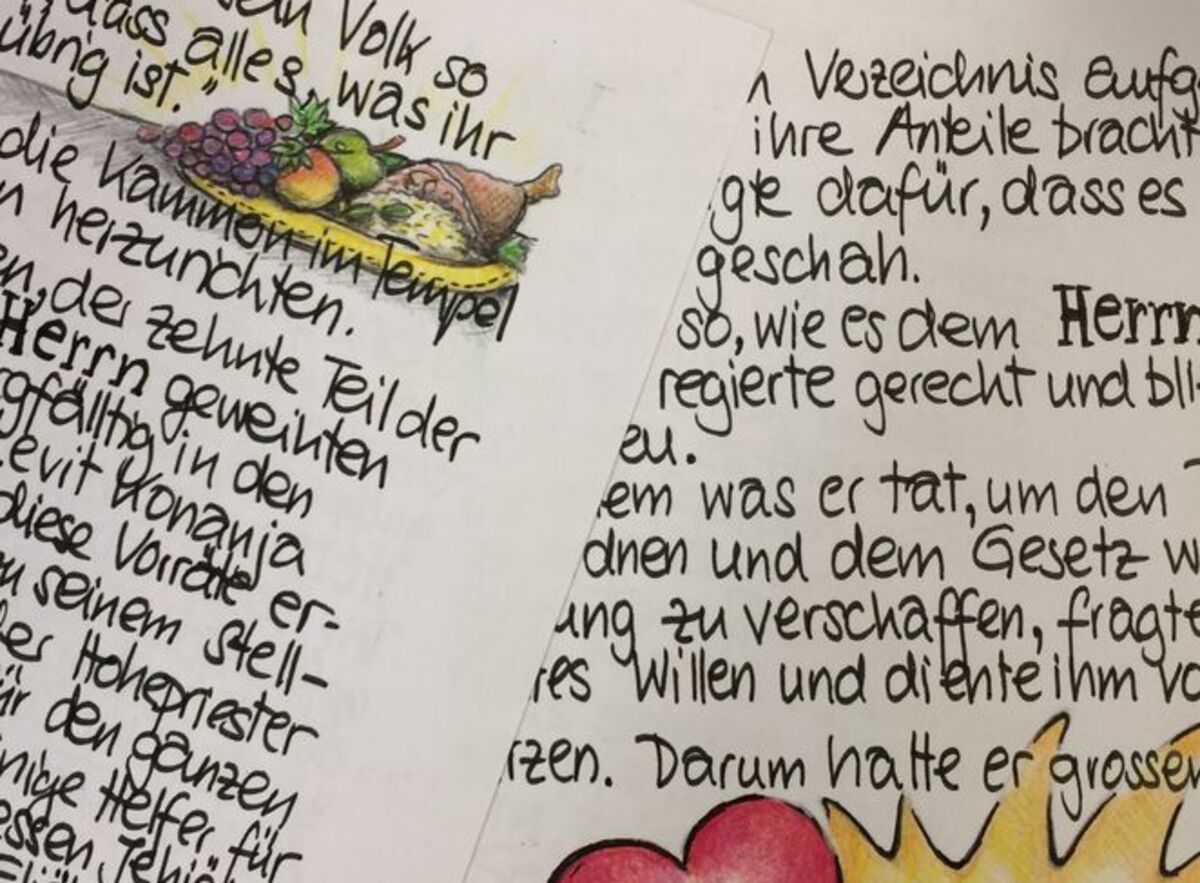 Volk so
dass alles, was ihr
übrig ist."
die Kammern im Tempel
herzurichten.
der zehnte Teil der
Herrn geweihten
in den
Konanja
diese Vorräte er-
seinem Stell-
Hohepriester
den ganzen
Helfer für
n Verzeichnis aufg
ihre Anteile bracht
gte dafür, dass es
geschah.
so, wie es dem Herrn
regierte gerecht und bli
eu.
em was er tat, um den
dnen und dem Gesetz w
ung zu verschaffen, fragte
tes Willen und diente ihm vo
rzen. Darum hatte er grossen